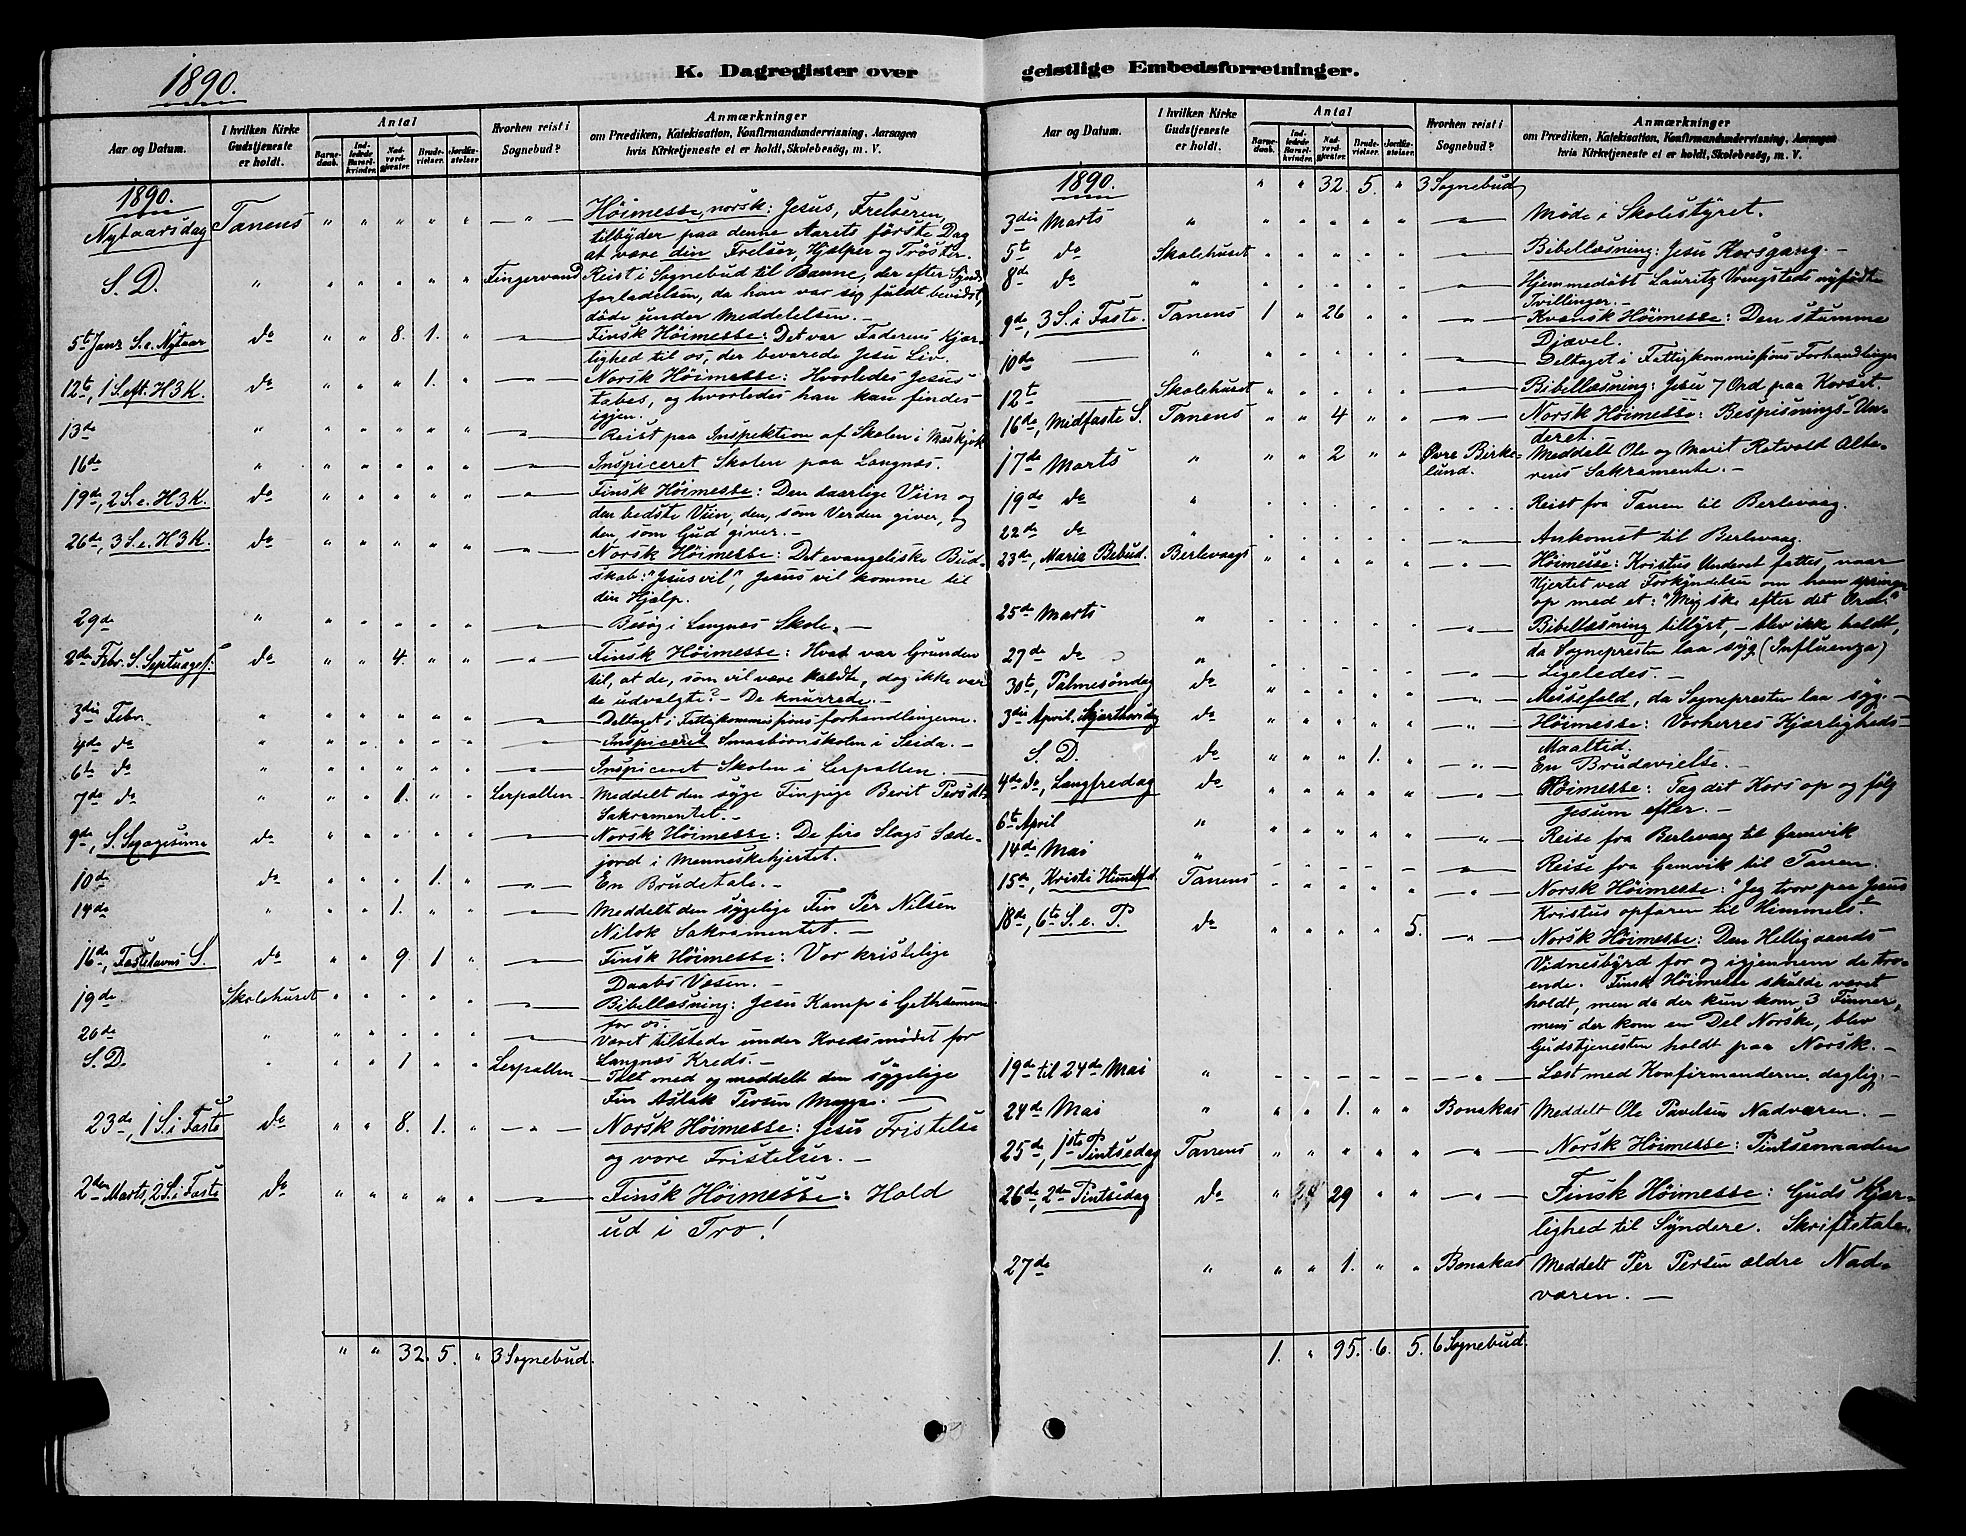 1890.
K. Dagregister over
Aar og Datum.
I hvilken Kirke
Gudstjeneste
er holdt.
Antal
Barne-
daab.
Ind-
ledede
Barsel-
kvinder.
Nad-
verd-
gjester.
Brude-
vielser.
Jordfæ-
stelser.
Hvorhen reist i
Sognebud?
Anmærkninger
om Prædiken, Katekisation, Konfirmandundervisning, Aarsagen
hvis Kirketjeneste ei er holdt, Skolebesög, m. V.
1890.
Nytaarsdag Tanens " " " " " —"— Höimesse, norsk: Jesus, Frelseren,
tilbyder paa denne Aarets förste Dag
at være din Frelser, Hjælper og Tröster.
S. D. " " " " " " Fingervand Reist i Sognebud til Banne, der efter Synds-
forladelsen, da han var sig fuldt bevidst,
döde under Meddelelsen. —
5te Janr S. e. Nytaar do " " 8. 1. " —"— Finsk Höimesse: Det var Faderens Kjær-
lighed til os, der bevarede Jesu Liv.
12te, 1 S. eft. H3K. do " " " 1. " —"— Norsk Höimesse: Hvorledes Jesus
tabes, og hvorledes han kan findes
igjen.
13de " " " " " " —"— Reist paa Inspektion af Skolen i Maskjok
16de " " " " " " —"— Inspiceret Skolen paa Langnæs.
19de, 2 S. e. H3K. do " " " " " —"— Finsk Höimesse: Den daarlige Viin og
den bedste Viin, den, som Verden giver, og
den, som Gud giver. —
26de, 3 S. e. H3K. do " " " " " —"— Norsk Höimesse: Det evangeliske Bud-
skab: "Jesus vil", Jesus vil komme til
din Hjælp.
29de " " " " " " —"— Besög i Langnæs Skole. —
2den Febr. S. Septuages: do " " 4. " " —"— Finsk Höimesse: Hvad var Grunden
til, at de, som vil være kaldte, dog ikke vare
de udvalgte? — De knurrede. —
3die Febr. " " " " " " —"— Deltaget i Fattigkommissions forhandlingerne.
4de do " " " " " " —"— Inspiceret Smaabörnsskolen i Seida. —
6te do " " " " " " —"— Inspiceret Skolen i Lerpollen. —
7de do " " " 1. " " Lerpollen — Meddelt den syge Finpige Berit Persdtr
Sakramentet. —
9de, S. Sexagesima do " " " " " —"— Norsk Höimesse: De fire Slags Sæde-
jord i Menneskehjertet.
10de do " " " 1. " —"— En Brudetale. —
14de " " " 1. " " —"— Meddelt den sygelige Fin Per Nilsen
Nilok Sakramentet. —
16de, Fastelavns S. do " " 9. 1 " —"— Finsk Höimesse: Vor kristelige
Daabs Væsen. —
19de Skolehuset " " " " " —"— Bibellæsning: Jesu Kamp i Gethsemane
for os.
20de " " " " " " —"— Været tilstede under Kredsmödet for
Langnæs Kreds. —
S. D. " " " 1 " " Lerpollen — Talt med og meddelt den sygelige
Fin Aslak Persen —
23de, 1 S. i Faste do " " 8. 1. " —"— Norsk Höimesse: Jesu Fristelse
og vore Fristelser. —
2den Marts, 2 S. i Faste do " " " " " —"— Finsk Höimesse: Hold
ud i Tro!
" " 32. 5. " 3 Sognebud.
geistlige Embedsforretninger.
Aar og Datum.
I hvilken Kirke
Gudstjeneste
er holdt.
Antal
Barne-
daab.
Ind-
ledede
Barsel-
kvinder.
Nad-
verd-
gjester.
Brude-
vielser.
Jordfæ-
stelser.
Hvorhen reist i
Sognebud?
Anmærkninger
om Prædiken, Katekisation, Konfirmandundervisning, Aarsagen
hvis Kirketjeneste ei er holdt, Skolebesög, m. V.
1890. " " 32. 5. " 3 Sognebud
3die Marts " " " " " " —"— Möde i Skolestyret.
5te do Skolehuset " " " " " —"— Bibellæsning: Jesu Korsgang. —
8de do " " " " " " —"— Hjemmedöbt Lauritz Vrengsteds nyfödte
Tvillinger. —
9de, 3 S. i Faste. Tanens 1 " 26 " " —"— Kvænsk Höimesse: Den stumme
Djævel.
10de — " " " " " " —"— Deltaget i Fattigkommissions Forhandlinger
12te — Skolehuset " " " " " —"— Bibellæsning: Jesu 7 Ord paa Korset.
16de, Midfaste S. Tanens " " 4 " " —"— Norsk Höimesse: Bespisnings-Un-
deret. —
17de Marts " " " 2 " " Övre Birke-
lund. Meddelt Ole og Marit Ratvold Alte-
rens Sakramente. —
19de do " " " " " " Reist fra Tanen til Berlevaag.
22de do " " " " " " —"— Ankomst til Berlevaag.
23de, Mariæ Bebud. Berlevaags " " " " " —"— Höimesse: Kristus Underet fattes, naar
Hjertet ved Forkyndelsen om ham springer
op med et: "Mig ske efter det Ord."
25de Marts " " " " " " —"— Bibellæsning tillyst, — blev ikke holdt,
da Sognepresten laa syg (Influenza)
27de do " " " " " " —"— Ligeledes. —
30te, Palmesöndag do " " " " " —"— Messefald, da Sognepresten laa syg. —
3die April, Skjærthorsdag do " " " " " —"— Höimesse: Vorherres Kjærligheds-
Maaltid.
S. D. do " " " 1. " —"— En Brudevielse. —
4de do, Langfredag do " " " " " —"— Höimesse: Tag dit Kors op og fölg
Jesum efter. —
6te April " " " " " " —"— Reise fra Berlevaag til Gamvik
14de Mai " - - - - - —"— Reise fra Gamvik til Tanen.
15de, Kristi Himelfd. Tanens " " " " " —"— Norsk Höimesse: Jeg tror paa Jesus
Kristus opfaren til Himmels.
18de, 6te S. e. P. do " " " " 5. —"— Norsk Höimesse: Den Helligaands
Vidnesbyrd for og igjennem de tro-
ende. Finsk Höimesse skulde været
holdt, men da der kun kom 3 Finner,
mens der kom en Del Norske, blev
Gudstjenesten holdt paa Norsk. —
19de til 24de Mai " - - - - - —"— Læst med Konfirmanderne daglig. —
24de Mai " " " 1. " " Bonakas Meddelt Ole Pavelsen Nadværen. —
25de, 1ste Pintsedag Tanens " " " " " —"— Norsk Höimesse: Pintseaanden
26de, 2den Pintsedag do " 29 " " —"— Finsk Höimesse: Guds Kjær-
lighed til Syndere. Skriftetale.
27de " " " 1. " " Bonakas Meddelt Per Persen ældre Nad-
væren. —
1. " 95. 6. 5. 6 Sognebud.